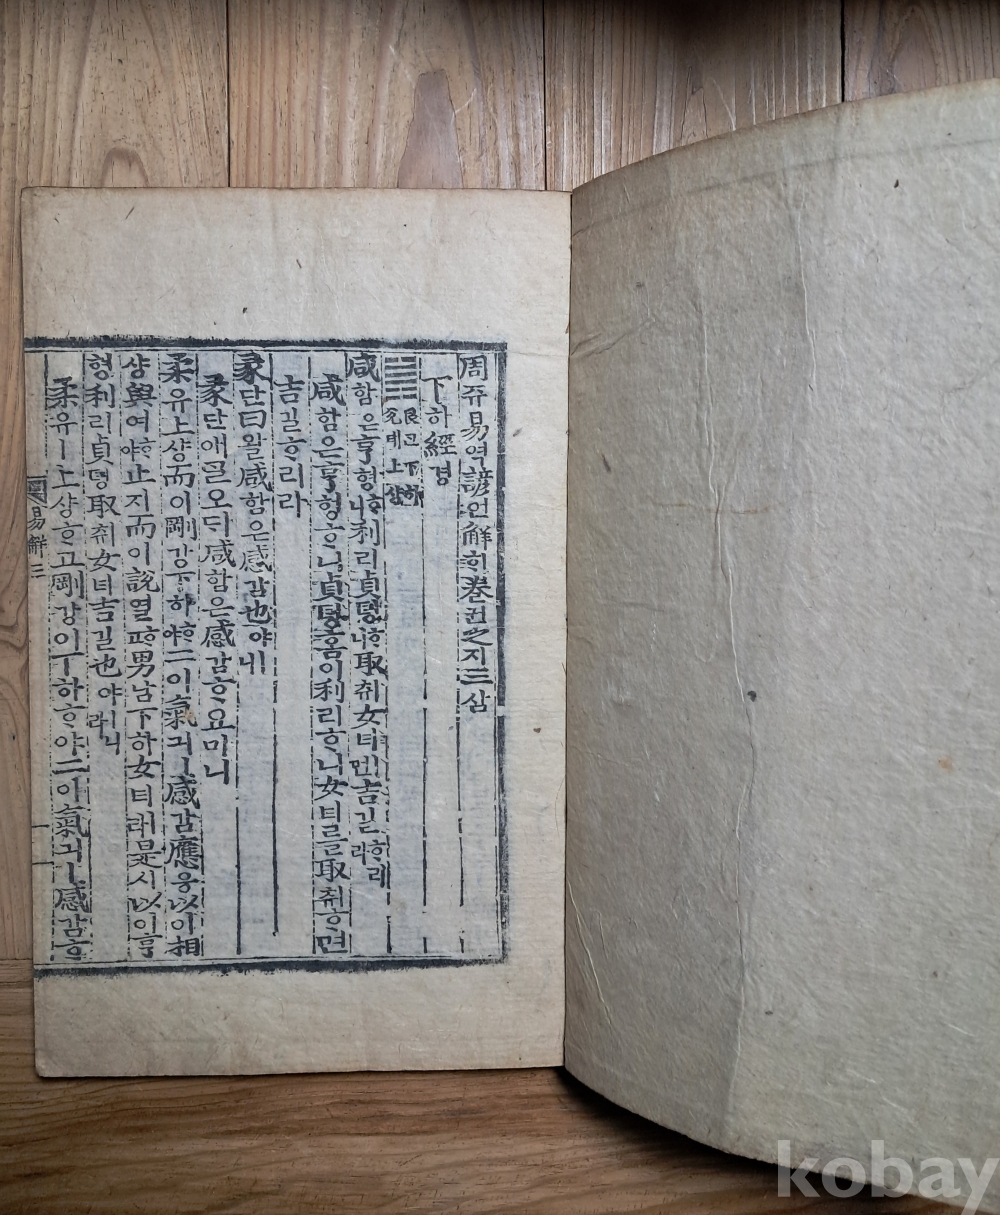 周쥬易역諺언解ᄒᆡ卷권之지三삼
下하經경
艮간下하
兌태上샹
咸함은亨형ᄒᆞ니利리貞뎡ᄒᆞ니取ᄎᆔ女녀ㅣ면吉길ᄒᆞ리라
咸함은亨형ᄒᆞ니貞뎡홈이利리ᄒᆞ니女녀를取ᄎᆔᄒᆞ면
吉길ᄒᆞ리라
彖단曰왈咸함은感감也야ㅣ니
彖단애ᄀᆞᆯ오ᄃᆡ咸함은感감ᄒᆞᆷ이니
柔유上샹而이剛강下하ᄒᆞ야二이氣긔ㅣ感감應응以이相
샹與여ᄒᆞ야止지而이說열ᄒᆞ고男남下하女녀ㅣ라是시以이亨
형利리貞뎡取ᄎᆔ女녀吉길也야ㅣ니라
柔유ㅣ上샹ᄒᆞ고剛강이下하ᄒᆞ야二이氣긔ㅣ感감ᄒᆞ
易解三
kobay